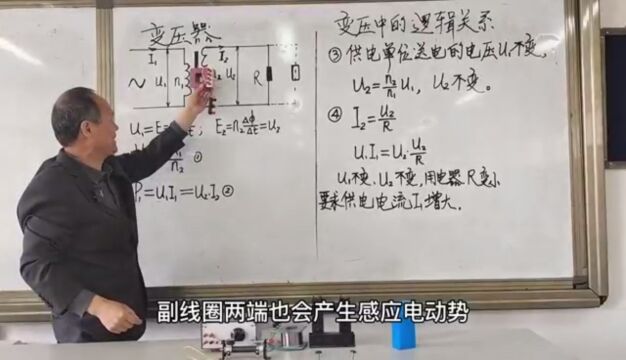 变压器
I₁
I₂
U₁
n₁
U₂
R
U₁=E
E₂=n₂ΔΦ/Δt=U₂
n₂ ①
P₁=U₁I₁=U₂I₂ ②
变压中的逻辑关系
③ 供电单位送电的电压U₁不变,
U₂=n₂/n₁ U₁, U₂不变。
④ I₂=U₂/R
U₁I₁=U₂·U₂/R
U₁不变、U₂不变,用电器R变小
要求供电电流I₁增大。
副线圈两端也会产生感应电动势